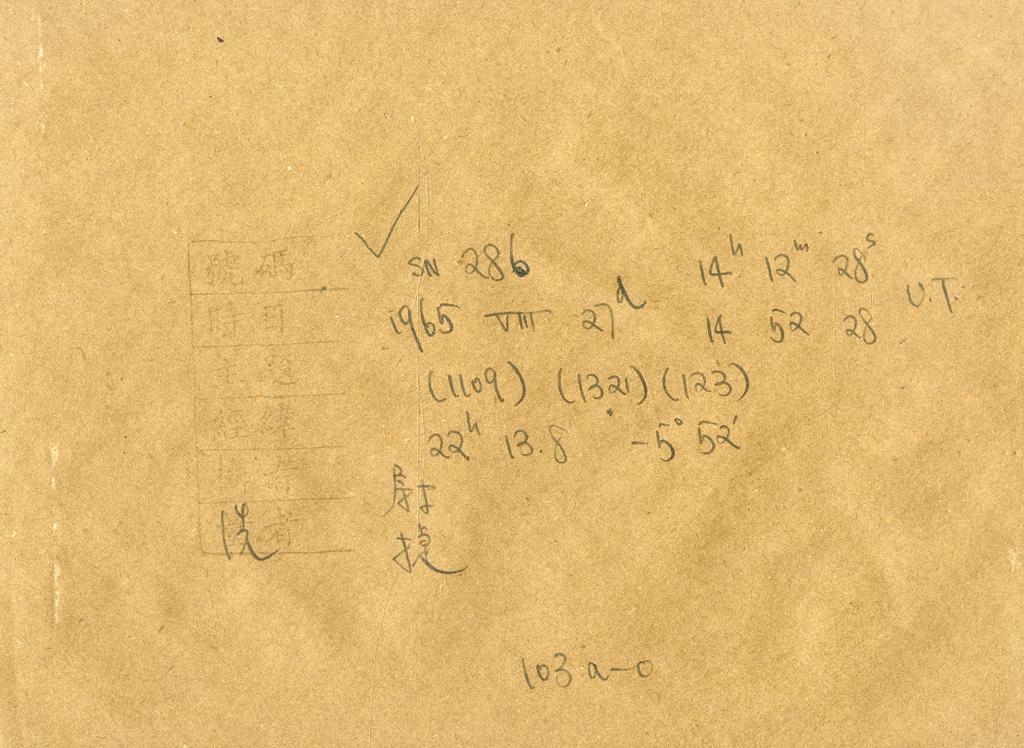 號碼 SN 286 14h 12m 28s
時日 1965 VIII 27d 14 52 28 U.T.
(1109) (1321) (123)
經緯 22h 13.8 -5° 52'
洗者
103 a-o